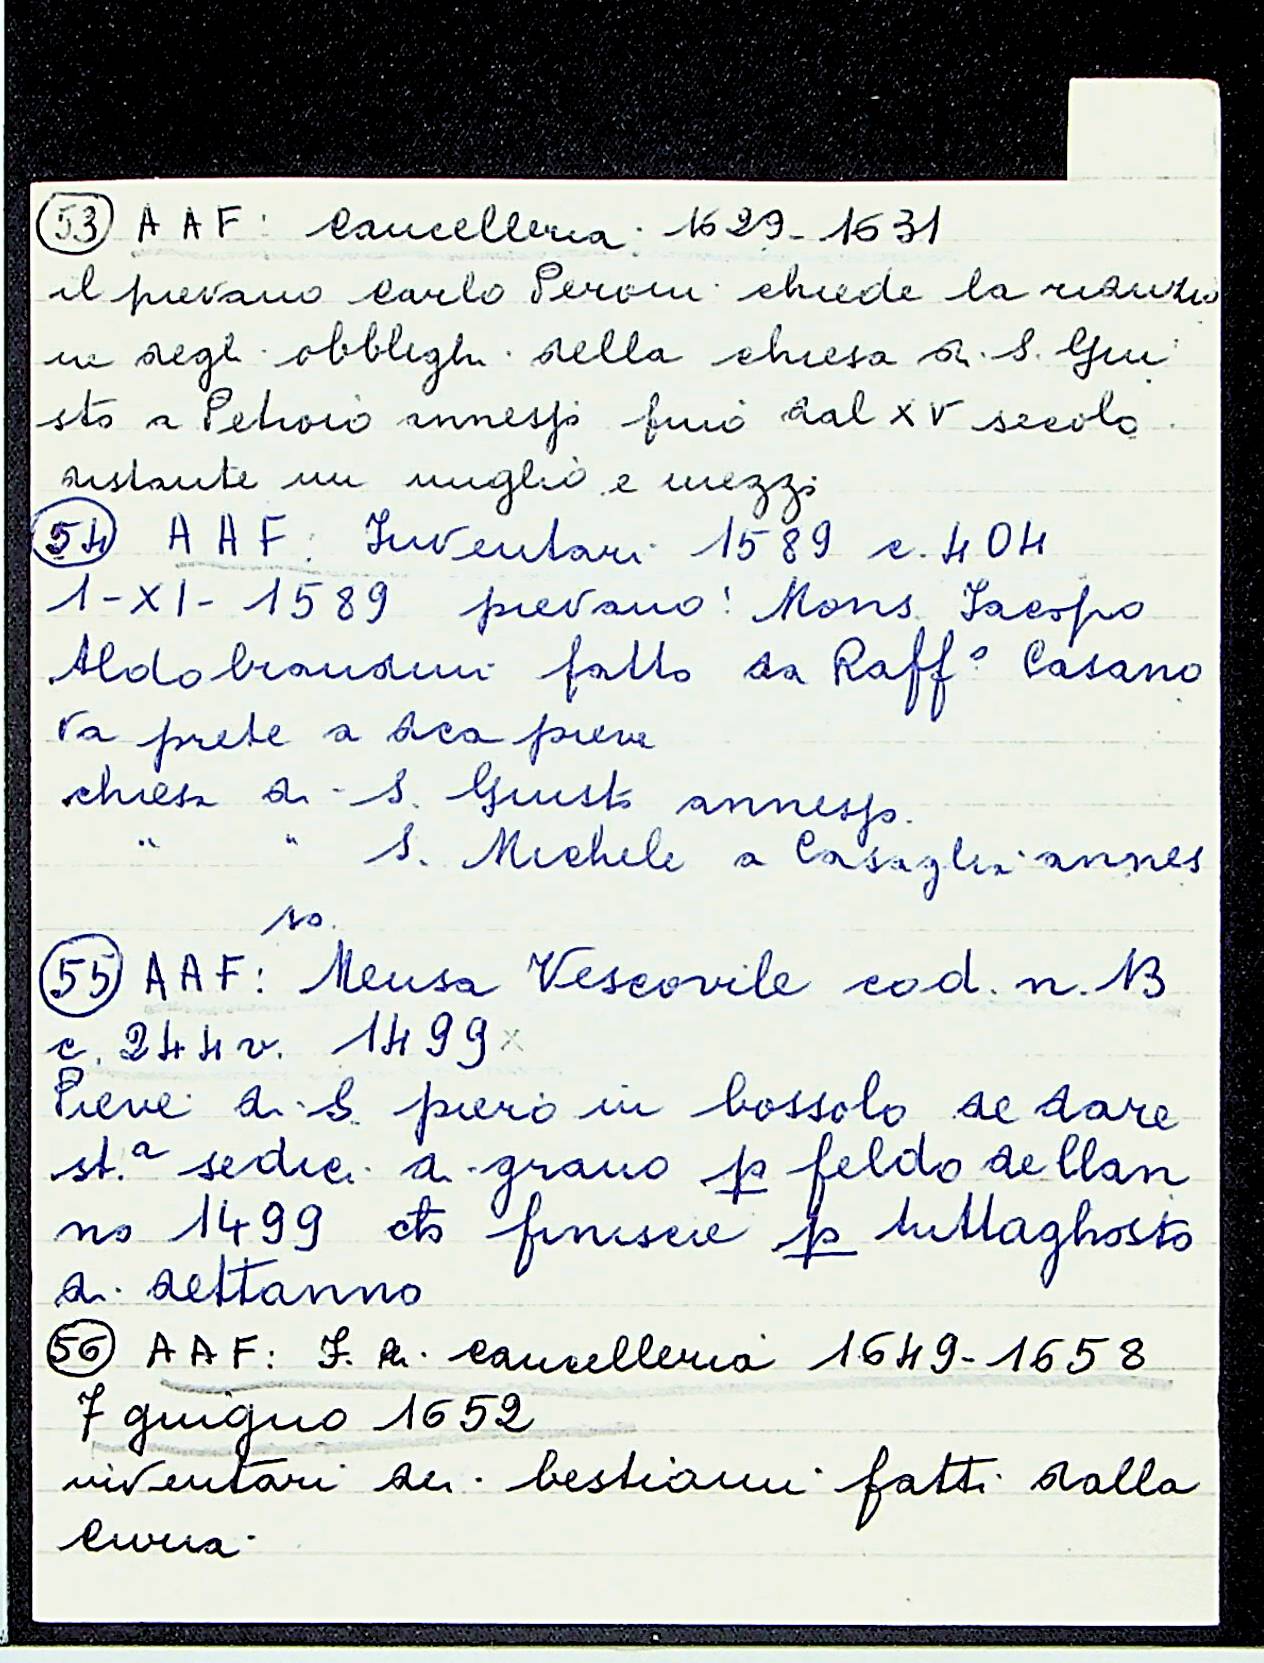 53 A A F: Cancelleria 1629-1631
il pievano Carlo Peroni chiede la riduzio
ne degli obblighi della chiesa di S. Giu
sto a Petroio annesso fino dal XV secolo
distante un miglio e mezzo
54 A A F: Inventari 1589 c. 404
1-XI-1589 pievano: Mons. Iacopo
Aldobrandini fatto da Raff° Casano
va prete a dca pieve
chiesa di S. Giusto annesso.
" " S. Michele a Casaglia annes
so.
55 A A F: Mensa Vescovile cod. n. 13
c. 244 v. 1499 x
Pieve di S. piero in bossolo de dare
st.a sedici di grano p feldo dellan
no 1499 cto finiscie p tuttaghosto
di dettanno
56 A A F: I. di Cancelleria 1649-1658
7 giugno 1652
inventari dei bestiami fatti dalla
Curia